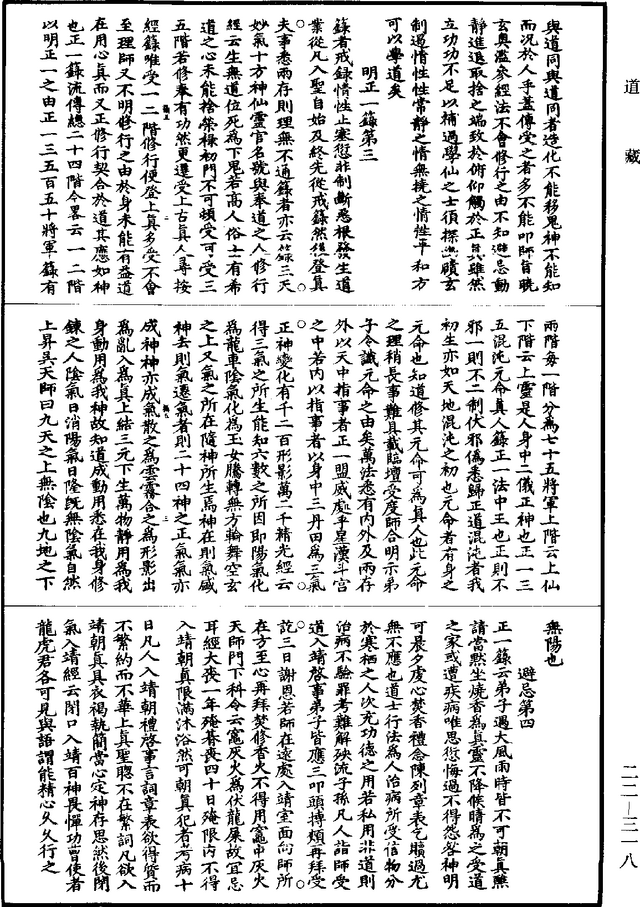 與道同與道同者造化不能移鬼神不能知
而況於人乎蓋傳受之者多不能叩師旨曉
玄奧濫參經法不會修行之由不知避忌動
靜進退取捨之端致於俯仰觸於正真雖然
立功功不足以補過學仙之士須探微賾玄
制遏情性性常靜之情無撓之情性平和方
可以學道矣
明正一籙第三
籙者戒錄情性止塞愆非制斷惡根發生道
業從凡入聖自始及終先從戒籙然後登真
夫事悉兩存則理無不通籙者亦云錄三天
妙氣十方神仙靈官名號與奉道之人修行
經云生無道位死為下鬼若高人俗士有希
道之心未能捨榮祿初門不可頓受可受三
五階若修奉有功然更遷受上古真人尋按
經籙唯受一二階修行便登上真多受不會
至理師又不明修行之由於身未能有益道
在用心真而又正修行契合於道其應如神
也正一籙流傳總二十四階今畧云一二階
以明正一之由正一三五百五十將軍籙有
兩階每一階分為七十五將軍上階云上仙
下階云上靈是人身中二儀正神也正一三
五混沌元命真人籙正一法中王也正則不
邪一則不二制伏邪偽悉歸正道混沌者我
初生亦如天地混沌之初也元命者有身之
元命也知道修其元命可為真人也此元命
之理稍長事難具載臨壇受度師合明示弟
子令識元命之由矣萬法悉有內外及兩存
外以天中指事者正一盟威處乎星漢斗宮
之中若內以指事者以身中三丹田為三氣
正神變化有千二百形影萬二千精光經云
得三氣之所生能知六數之所因即陽氣化
為龍車陰氣化為玉女騰轉無方輪舞空玄
之上又氣之所在隨神所生焉神在則氣盛
神去則氣遷氣者則二十四神之正氣氣亦
成神神亦成氣散之為雲霧合之為形影出
為亂入為真上結三元下生萬物靜用為我
身動用為我神故知道成動用悉在我身修
鍊之人陰氣日消陽氣日隆既無陰氣自然
上昇吳天師曰九天之上無陰也九地之下
無陽也
避忌第四
正一籙云弟子遇大風雨時皆不可朝真醮
請當默坐燒香為真靈不降候晴為之受道
之家或遭疾病唯思愆悔過不得怨咎神明
可晨夕虔心焚香禮念陳列章表乞贖過尤
無不應也道士行法為人治病所受信物分
於寒栖之人次充功德之用若私用非道則
治病不驗罪考難解殃流子孫凡人詣師受
道入靖啓事弟子皆應三叩頭搏頰再拜受
訖三日謝恩若師在遠處入靖室面向師所
在方至心再拜焚修香火不得用竈中灰火
天師門下科令云竈灰火為伏龍屎故宜忌
耳經大喪一年殗朞喪四十日殗限內不得
入靖朝真限滿沐浴然可朝真犯者考病十
日凡人入靖朝禮啓事言詞章表欲得質而
不繁約而不華上真聖聰不在繁詞凡欲入
靖朝真具衣褐執簡當心定神存思然後閉
氣入靖經云閉口入靖百神畏憚功曹使者
龍虎君各可見與語謂能精心久久行之
道藏
二二—三一八